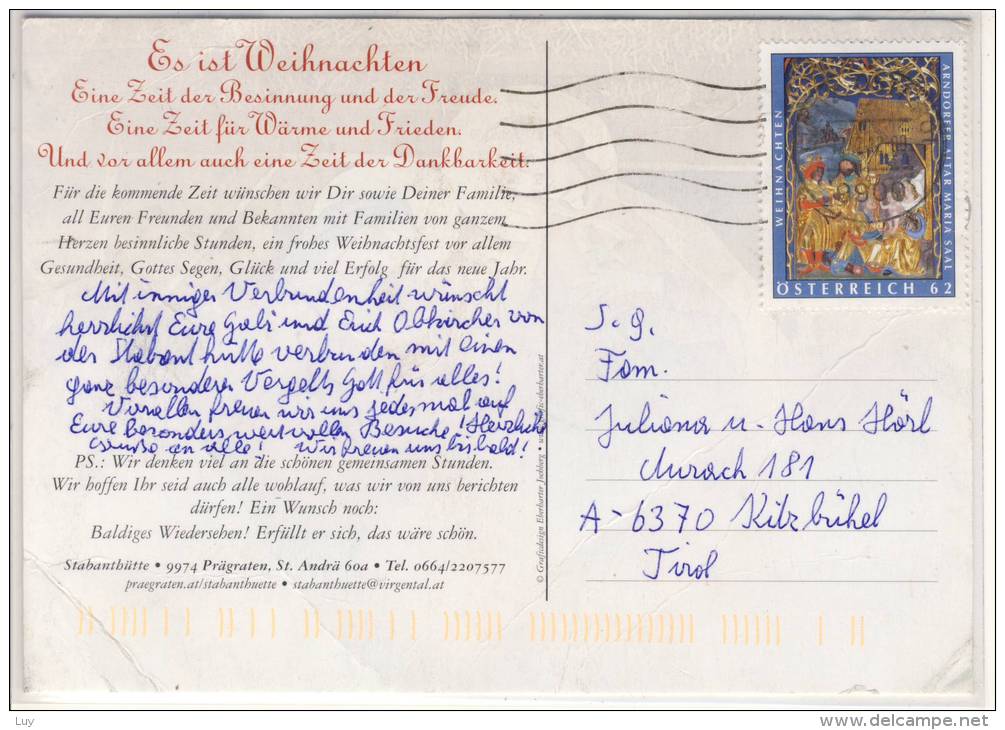 Es ist Weihnachten
Eine Zeit der Besinnung und der Freude.
Eine Zeit für Wärme und Frieden.
Und vor allem auch eine Zeit der Dankbarkeit.
Für die kommende Zeit wünschen wir Dir sowie Deiner Familie,
all Euren Freunden und Bekannten mit Familien von ganzem
Herzen besinnliche Stunden, ein frohes Weihnachtsfest vor allem
Gesundheit, Gottes Segen, Glück und viel Erfolg für das neue Jahr.
Mit inniger Verbundenheit wünscht
herzlichst Eure Gabi und Erich Obkircher von
der Stabanthütte verbunden mit einen
ganz besonderen Vergelts Gott für alles!
Vorallem freuen wir uns jedesmal auf
Eure besonders wertvollen Besuche! Herzliche
Grüße an alle! Wir freuen uns bis bald!
PS.: Wir denken viel an die schönen gemeinsamen Stunden.
Wir hoffen Ihr seid auch alle wohlauf, was wir von uns berichten
dürfen! Ein Wunsch noch:
Baldiges Wiedersehen! Erfüllt er sich, das wäre schön.
Stabanthütte • 9974 Prägraten, St. Andrä 60a • Tel. 0664/2207577
praegraten.at/stabanthuette • stabanthuette@virgental.at
© Graficdesign Eberharter Jochberg • www.grafic-eberharter.at
WEIHNACHTEN
ARNDORFER ALTAR MARIA SAAL
ÖSTERREICH 62
9900
S. g.
Fam.
Juliana u. Hans Hörl
Aurach 181
A-6370 Kitzbühel
Tirol
Luy
www.delcampe.net